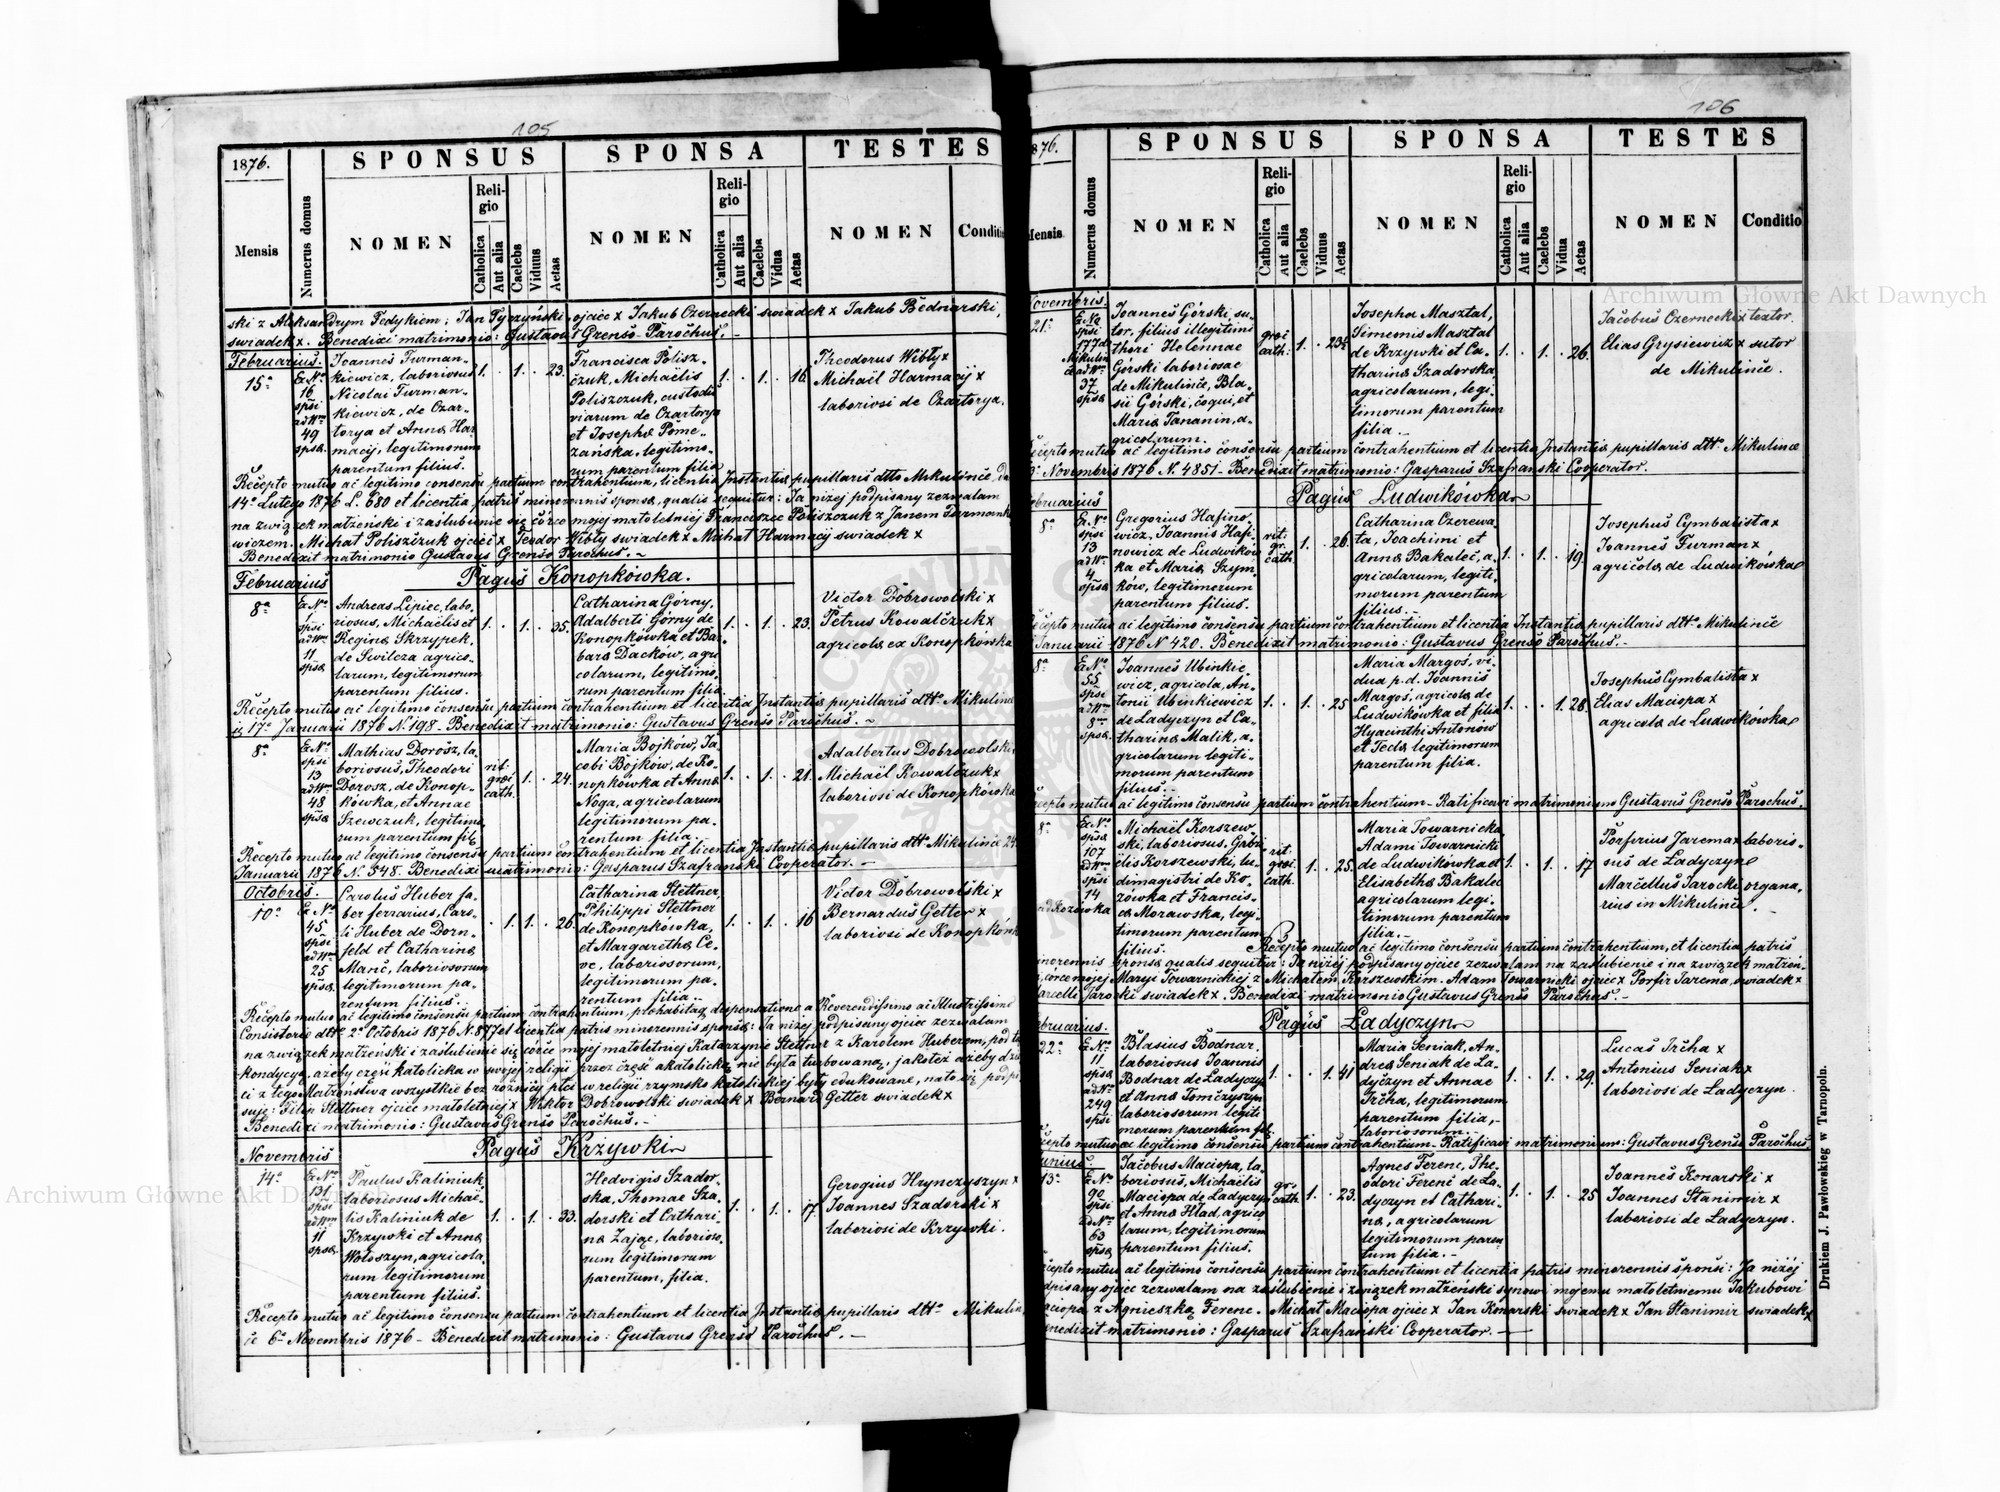 105
1876.
SPONSUS
SPONSA
TESTES
Mensis
Numerus domus
NOMEN
Religio
Catholica
Aut alia
Caelebs
Viduus
Aetas
NOMEN
Religio
Catholica
Aut alia
Caelebs
Vidua
Aetas
NOMEN
Conditi
ski z Aleksandrym Fedykiem; Jan Tyczyński, ojciec x Jakub Czernecki swiadek x Jakub Bednarski,
swiadek x. Benedixi matrimonio: Gustavus Grenso Parochus. -
Februarius.
15a
Ex No
16
spsi
ad Num
49
spsa.
Joannes Furman-
kiewicz, laboriosus
Nicolai Furman-
kiewicz, de Czar-
torya et Anna Har-
macij, legitimorum
parentum filius.
1. . 1. . 23.
Francisca Polisz-
czuk, Michaëlis
Poliszczuk, custodis
viarum de Czartorya
et Josepha Pome-
zańska, legitimo-
rum parentum filia
1. . 1. . 16.
Theodorus Wibły x
Michaël Harmacij x
laboriosi de Czartorya.
Recepto mutuo ac legitimo consensu partium contrahentium, licentia Instantia pupillaris dtto Mikulince, d
14a Lutego 1876 L. 680 et licentia patris minorennis sponsa, qualis sequitur: Ja niżej podpisany zezwalam
na związek małżeński i zaślubienie się córce mojej małoletniej Franciszce Poliszczuk z Janem Furman
wiczem. Michał Poliszczuk ojciec x Teodor Wibły swiadek x Michał Harmacij swiadek x
Benedixit matrimonio Gustavus Grenso Parochus. -
Pagus Konopkówka.
Februarius
8a
Ex No
1
spsi
ad Num
11
spsa
Andreas Lipiec, labo-
riosus, Michaëlis et
Regina Skrzypek,
de Swilcza agrico-
larum, legitimorum
parentum filius.
1. . 1. . 35.
Catharina Górny,
Adalberti Górny de
Konopkówka et Bar-
bara Daćków, agri
colarum, legitimo-
rum parentum filia
1. . 1. . 23.
Victor Dobrowolski x
Petrus Kowalczuk x
agricola ex Konopkówka
Recepto mutuo ac legitimo consensu partium contrahentium et licentia Instantia pupillaris dtto Mikulince
17a Januarii 1876 N. 198 - Benedixit matrimonio: Gustavus Grenso Parochus. -
8a
Ex No
spsi
13
ad Num
48
spsa
Mathias Dorosz, la-
boriosus, Theodori
Dorosz, de Konop-
kówka, et Annae
Szewczuk, legitimo
rum parentum fil.
rit.
græi
cath.
1. . 24.
Maria Bojków, Ja-
cobi Bojków, de Ko-
nopkówka et Anna
Noga, agricolarum
legitimorum pa-
rentum filia.
1. . 1. . 21.
Adalbertus Dobrowolski
Michaël Kowalczuk x
laboriosi de Konopkówka
Recepto mutuo ac legitimo consensu partium contrahentium et licentia Instantia pupillaris dtto Mikulince 24.
Januarii 1876 N. 548. Benedixi matrimonio: Gasparus Szafranski Cooperator. -
Octobris.
10a
Ex No
45
spsi
ad Num
25
spsa.
Carolus Huber fa-
ber ferrarius, Caro-
li Huber de Dorn-
feld et Catharina
Manc, laboriosorum
legitimorum pa-
rentum filius.
. 1. 1. . 26.
Catharina Stettner,
Philippi Stettner
de Konopkówka,
et Margaretha Ce-
ve, laboriosorum,
legitimorum pa-
rentum filia.
1. . 1. . 16
Victor Dobrowolski x
Bernardus Getter x
laboriosi de Konopków
Recepto mutuo ac legitimo consensu partium contrahentium, prohabitaq dispensatione a Reverendissimo ac Illustrissimo
Consistorio dtto 2a Octobris 1876 N. 877 et licentia patris minorennis sponsa: Ja niżej podpisany ojciec zezwalam
na związek małżeński i zaślubienie się córce mojej małoletniej Katarzynie Stettner z Karolem Huberem, pod tą
kondycyą, ażeby część katolicka w swojej religii przez część akatolicką nie była turbowaną, jakoteż ażeby dzie
ci z tego Małżeństwa wszystkie bez różnicy płci w religii rzymsko katolickiej były edukowane, na to się podpi
suje: Filip Stettner ojciec małoletniej x Wiktor Dobrowolski swiadek x Bernard Getter swiadek x
Benedixi matrimonio: Gustavus Grenso Parochus. -
Pagus Krzywki
Novembris
14a
Ex No
131
spsi
ad Num
11
spsa.
Paulus Kaliniuk,
laboriosus Michaë-
lis Kaliniuk de
Krzywki et Anna
Wołoszyn, agricola-
rum legitimorum
parentum filius.
1. . 1. . 33.
Hedvigis Szador-
ska, Thomae Sza-
dorski et Cathari-
na Zając, laborioso-
rum legitimorum
parentum, filia.
1. . 1. . 17.
Gerogius Hrynczyszyn x
Joannes Szadorski x
laboriosi de Krzywki.
Recepto mutuo ac legitimo consensu partium contrahentium et licentia Instantia pupillaris dtto Mikulin
ce 6a Novembris 1876 - Benedixit matrimonio: Gustavus Grenso Parochus. -
106
876.
SPONSUS
SPONSA
TESTES
Mensis
Numerus domus
NOMEN
Religio
Catholica
Aut alia
Caelebs
Viduus
Aetas
NOMEN
Religio
Catholica
Aut alia
Caelebs
Vidua
Aetas
NOMEN
Conditio
Novembris.
21a
Ex No
spsi
177 de
Mikulin
ce ad No
37
spsa
Joannes Górski, su-
tor, filius illegitimi
thori Helennae
Górski laboriosae
de Mikulince, Bla-
sii Górski, coqui, et
Maria Tananin, a-
gricolarum.
græi
cath.
1. . 23½
Josepha Masztal,
Simeonis Masztal
de Krzywki et Ca-
tharina Szadorska
agricolarum, legi-
timorum parentum
filia.
1. . 1. . 26.
Jacobus Czernecki x textor.
Elias Grysiewicz x sutor
de Mikulince.
ecepto mutuo ac legitimo consensu partium contrahentium et licentia Instantia pupillaris dtto Mikulince
Novembris 1876 N. 4851 - Benedixit matrimonio: Gasparus Szafranski Cooperator.
Pagus Ludwikówka
ebruarius
8a
Ex No
spsi
13
ad N.
4
spsa
Gregorius Hafino-
wicz, Joannis Hafi-
nowicz de Ludwików
ka et Maria Szym-
ków, legitimorum
parentum filius.
rit.
gr.
cath.
1. . 26.
Catharina Czerewa-
ta, Joachimi et
Anna Bakalec, a-
gricolarum, legiti-
morum parentum
filius.
1. . 1. . 19.
Josephus Cymbalista x
Joannes Furman x
agricola de Ludwikówka
ecepto mutuo ac legitimo consensu partium contrahentium et licentia Instantia pupillaris dtto Mikulince
Januarii 1876 N 420. Benedixit matrimonio: Gustavus Grenso Parochus. -
8a
Ex No
55
spsi
ad No
8
spsa.
Joannes Ubinkie-
wicz, agricola, An-
tonii Ubinkiewicz
de Ladyczyn et Ca-
tharina Malik, a-
gricolarum legiti-
morum parentum
filius.
1. . 1. . 25
Maria Margos, vi-
dua p. d. Joannis
Margos, agricola de
Ludwikówka et filia
Hyacinthi Antonow
et Tecla legitimorum
parentum filia.
1. . . 1. 28.
Josephus Cymbalista x
Elias Maciopa x
agricola de Ludwikówka
ecepto mutuo ac legitimo consensu partium contrahentium - Ratificavi matrimonium Gustavus Grenso Parochus
8a
Ex No
spsi
107
ad Num
spsi
14
ad Kozówka
Michaël Korszew-
ski, laboriosus, Gabri-
ëlis Korszewski, lu-
dimagistri de Ko-
zówka et Francis-
ca Morawska, legi-
timorum parentum
filius.
rit.
græi
cath.
1. . 25.
Maria Towarnicka
Adami Towarnicki
de Ludwikówka et
Elisabetha Bakalec
agricolarum legi-
timorum parentum
filia.
1. . 1. . 17
Porfirius Jarema x laborio-
sus de Ladyczyn
Marcellus Jarocki organa-
rius in Mikulince.
Recepto mutuo ac legitimo consensu partium contrahentium, et licentia patris
inorennis sponsa qualis sequitur: Ja niżej podpisany ojciec zezwalam na zaślubienie i na związek małżeń-
córce mojej Maryi Towarnickiej z Michałem Korszewskim. Adam Towarnicki ojciec x Porfir Jarema, swiadek x
arcelli Jarocki swiadek x. Benedixi matrimonio Gustavus Grenso Parochus. -
Pagus Ladyczyn
ebruarius.
22a
Ex No
11
spsa
ad No
249
spsi
Blasius Bodnar,
laboriosus Joannis
Bodnar de Ladyczyn
et Anna Tomczyszyn
laboriosorum legiti
morum parentum fil.
1. . . 1. 41
Maria Seniak, An-
drea Seniak de La-
dyczyn et Annae
Ircha, legitimorum
parentum filia,
laboriosorum.
1. . 1. . 29.
Lucas Ircha x
Antonius Seniak x
laboriosi de Ladyczyn.
cepto mutuo ac legitimo consensu partium contrahentium - Ratificavi matrimonium: Gustavus Grenso Parochus
unius.
13a
Ex No
90
spsi
ad No
63
spsa
Jacobus Maciopa, la-
boriosus, Michaëlis
Maciopa de Ladyczyn
et Anna Hlad, agrico
larum, legitimorum
parentum filius.
gr.
cath.
1. . 23.
Agnes Ferenc, The-
odori Ferenc de La-
dyczyn et Cathari-
na, agricolarum
legitimorum paren-
tum filia.
1. . 1. . 25
Joannes Konarski x
Joannes Stanimir x
laboriosi de Ladyczyn.
cepto mutuo ac legitimo consensu partium contrahentium et licentia patris minorennis sponsi: Ja niżej
dpisany ojciec zezwalam na zaślubienie i związek małżeński synowi mojemu małoletniemu Jakubowi
aciopa z Agnieszką Ferenc. Michał Maciopa ojciec x Jan Konarski swiadek x Jan Stanimir swiadek x
enedixit matrimonio: Gasparus Szafrański Cooperator. -
Drukiem J. Pawłowskieg w Tarnopolu.
Archiwum Główne Akt Dawnych
Archiwum Główne Akt Dawnych